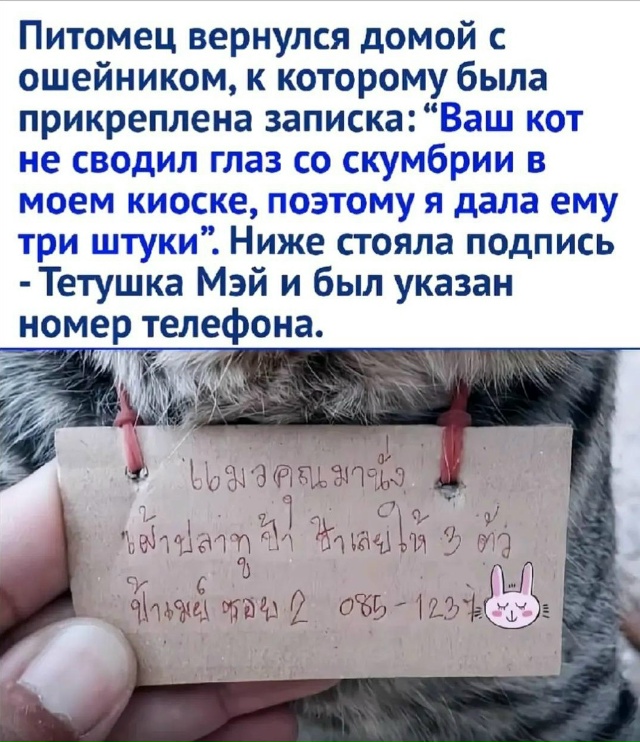 Питомец вернулся домой с
ошейником, к которому была
прикреплена записка: “Ваш кот
не сводил глаз со скумбрии в
моем киоске, поэтому я дала ему
три штуки”. Ниже стояла подпись
- Тетушка Мэй и был указан
номер телефона.
แมวคุณมานั่ง
เฝ้าปลาทูป้า ป้าเลยให้ 3 ตัว
ป้าเมย์ ซอย 2 085-123